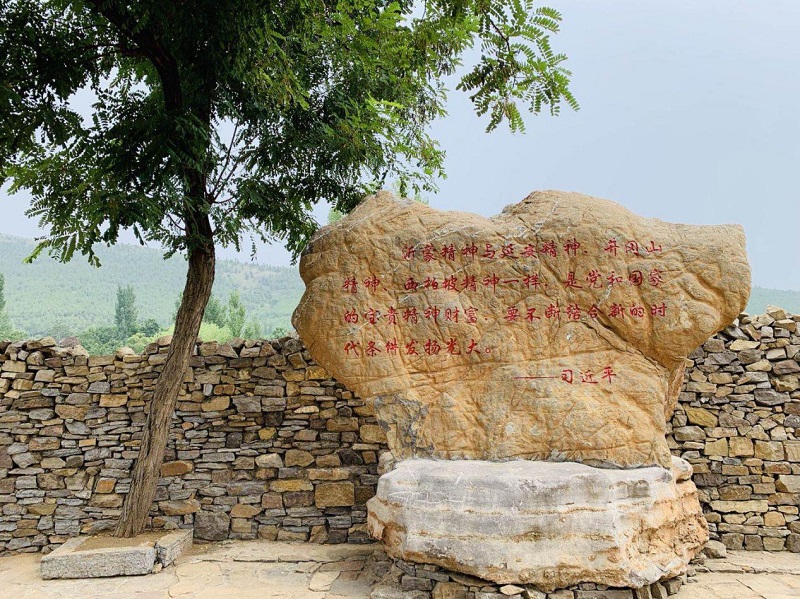 沂蒙精神与延安精神、井冈山
精神、西柏坡精神一样，是党和国家
的宝贵精神财富，要不断结合新的时
代条件发扬光大。
——习近平